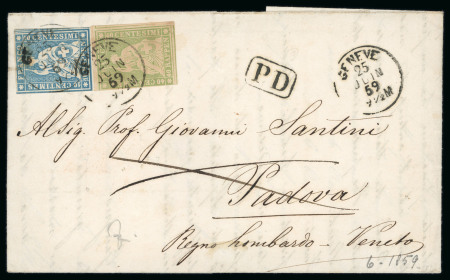 CENTESIMI
CENTESIMI
GENEVE
25
JUIN
59
9½M
PD
GENEVE
25
JUIN
59
9½M
Al Sig. Prof. Giovanni Santini
Padova
Regno Lombardo - Veneto
6-1859